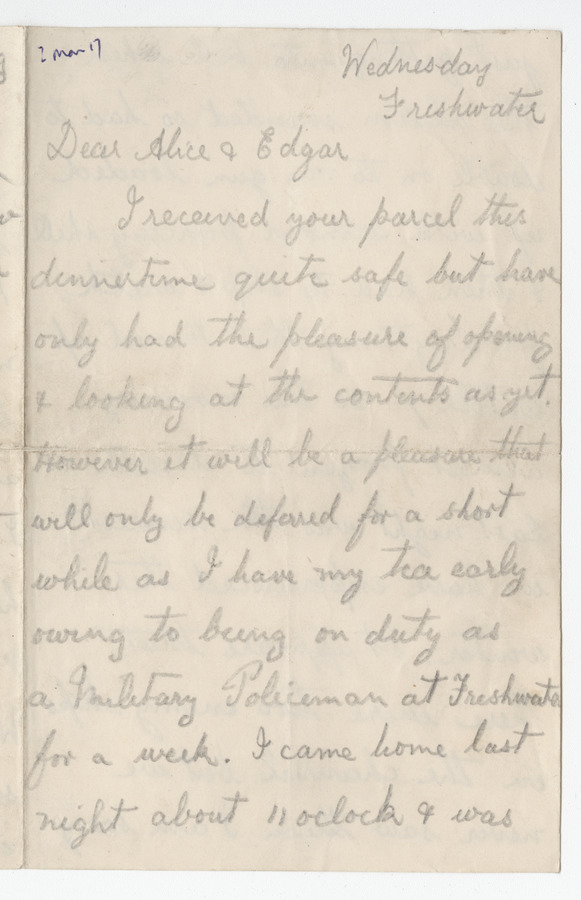 2 Mar 17
Wednesday
Freshwater
Dear Alice & Edgar
I received your parcel this
dinnertime quite safe but have
only had the pleasure of opening
& looking at the contents as yet.
However it will be a pleasure that
will only be deferred for a short
while as I have my tea early
owing to being on duty as
a Military Policeman at Freshwater
for a week. I came home last
night about 11 oclock & was